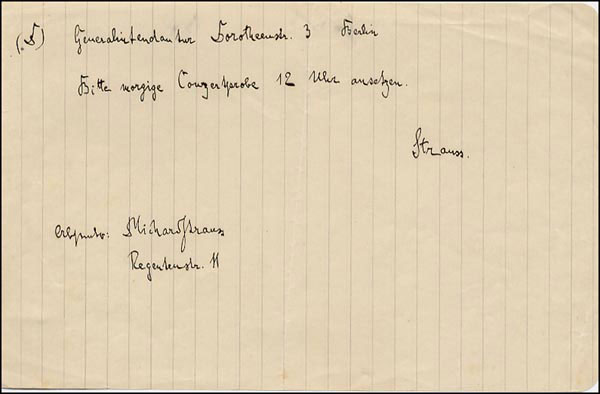 (D) Generalintendantur Dorotheenstr. 3 Berlin
Bitte morgige Conzertprobe 12 Uhr ansetzen.
Strauss.
Richard Strauss
Regentenstr. 11